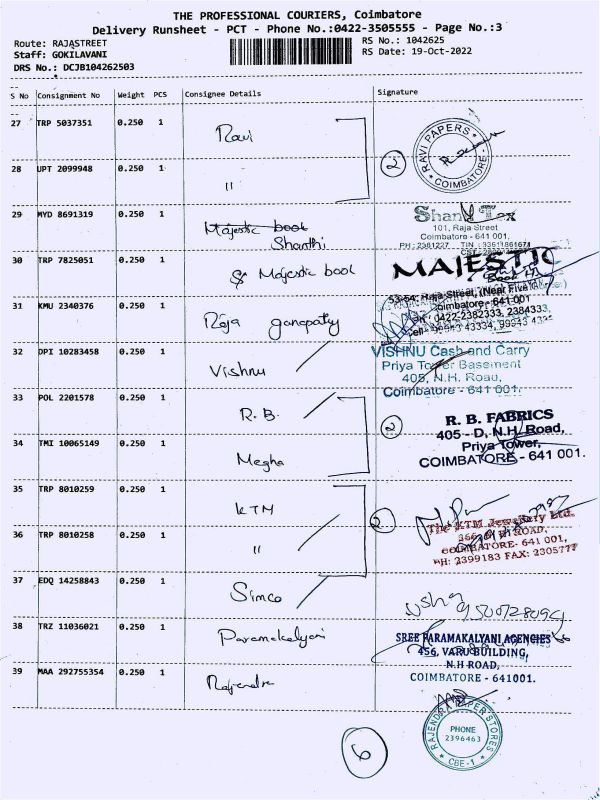 THE PROFESSIONAL COURIERS, Coimbatore
Delivery Runsheet - PCT - Phone No.:0422-3505555 - Page No.:3
Route: RAJASTREET
Staff: GOKILAVANI
DRS No.: DCJB104262503
RS No.: 1042625
RS Date: 19-Oct-2022
S No Consignment No Weight PCS Consignee Details Signature
27 TRP 5037351 0.250 1 Ravi
2
RAVI PAPERS
COIMBATORE
28 UPT 2099948 0.250 1 "
29 MYD 8691319 0.250 1 Majestic book
Shanthi
Shanti Tex
101, Raja Street
Coimbatore - 641 001.
PH : 2381227 TIN : 33611861674
30 TRP 7825051 0.250 1 Majestic book
MAJESTIC
Book
53-54, Raja Street, (Near Five
Coimbatore - 641 001
0422-2382333, 2384333,
43334,
31 KMU 2340376 0.250 1 Raja ganapathy
32 DPI 10283458 0.250 1 Vishnu
VISHNU Cash and Carry
Priya Tower Basement
405, N.H. Road,
Coimbatore - 641 001.
33 POL 2201578 0.250 1 R.B.
2
R. B. FABRICS
405 - D, N.H. Road,
Priya Tower,
COIMBATORE - 641 001.
34 TMI 10065149 0.250 1 Megha
35 TRP 8010259 0.250 1 KTM
2
The KTM Jewellery Ltd.
ROAD,
COIMBATORE- 641 001,
PH: 2399183 FAX: 2305777
36 TRP 8010258 0.250 1 "
37 EDQ 14258843 0.250 1 Simco
usha
38 TRZ 11036021 0.250 1 Paramakalyani
SREE PARAMAKALYANI AGENCIES
456, VARU BUILDING,
N.H ROAD,
COIMBATORE - 641001.
39 MAA 292755354 0.250 1 Rajendra
RAJENDRA PAPER STORES
PHONE
2396463
CBE-1
6